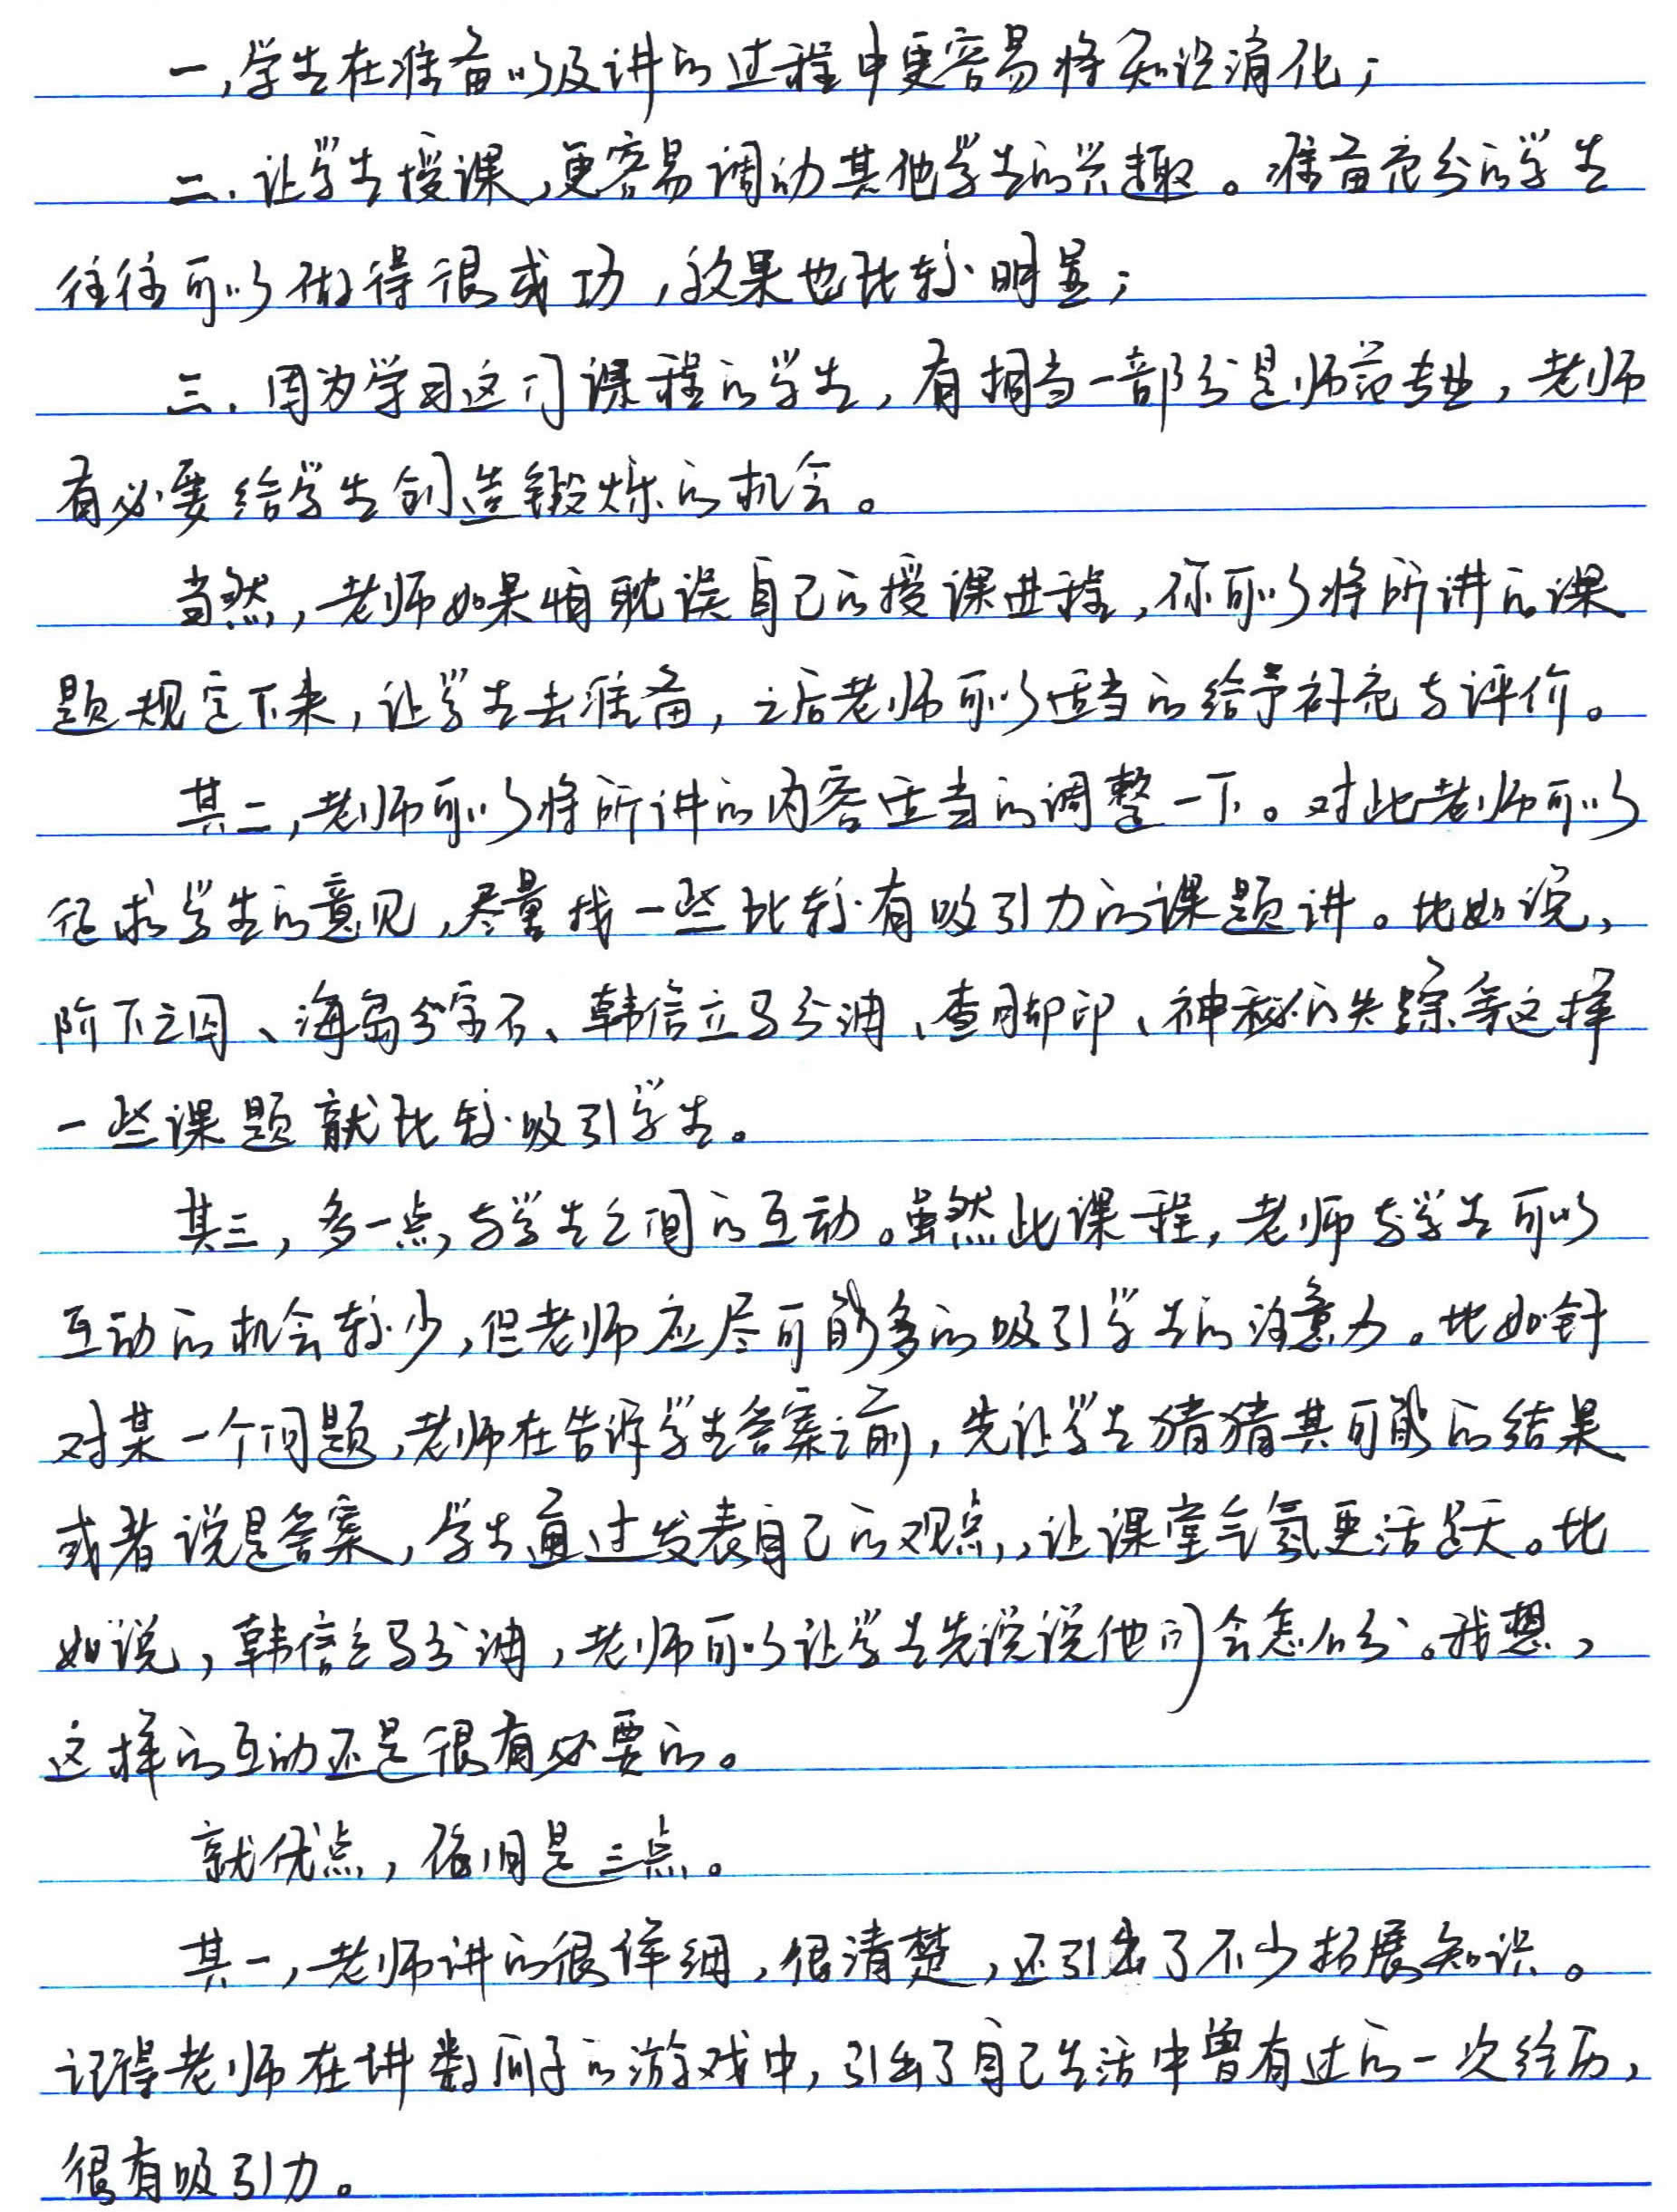 一,学生在准备以及讲的过程中更容易将知识消化;
二、让学生授课,更容易调动其他学生的兴趣。准备充分的学生
往往可以做得很成功,效果也比较明显;
三、因为学习这门课程的学生,有相当一部分是师范专业,老师
有必要给学生创造锻炼的机会。
当然,老师如果怕耽误自己的授课进程,你可以将所讲的课
题规定下来,让学生去准备,之后老师可以适当的给予补充与评价。
其二,老师可以将所讲的内容适当的调整一下。对此老师可以
征求学生的意见,尽量找一些比较有吸引力的课题讲。比如说,
阶下之囚、海岛分宝石、韩信立马分油、查脚印、神秘的失踪等这样
一些课题就比较吸引学生。
其三,多一点与学生之间的互动。虽然此课程,老师与学生可以
互动的机会较少,但老师应尽可能多的吸引学生的注意力。比如针
对某一个问题,老师在告诉学生答案之前,先让学生猜猜其可能的结果
或者说是答案,学生通过发表自己的观点,让课堂气氛更活跃。比
如说,韩信立马分油,老师可以让学生先说说他们会怎么分。我想,
这样的互动还是很有必要的。
就优点,依旧是三点。
其一,老师讲的很详细,很清楚,还引出了不少拓展知识。
记得老师在讲数瓜子的游戏中,引出了自己生活中曾有过的一次经历,
很有吸引力。